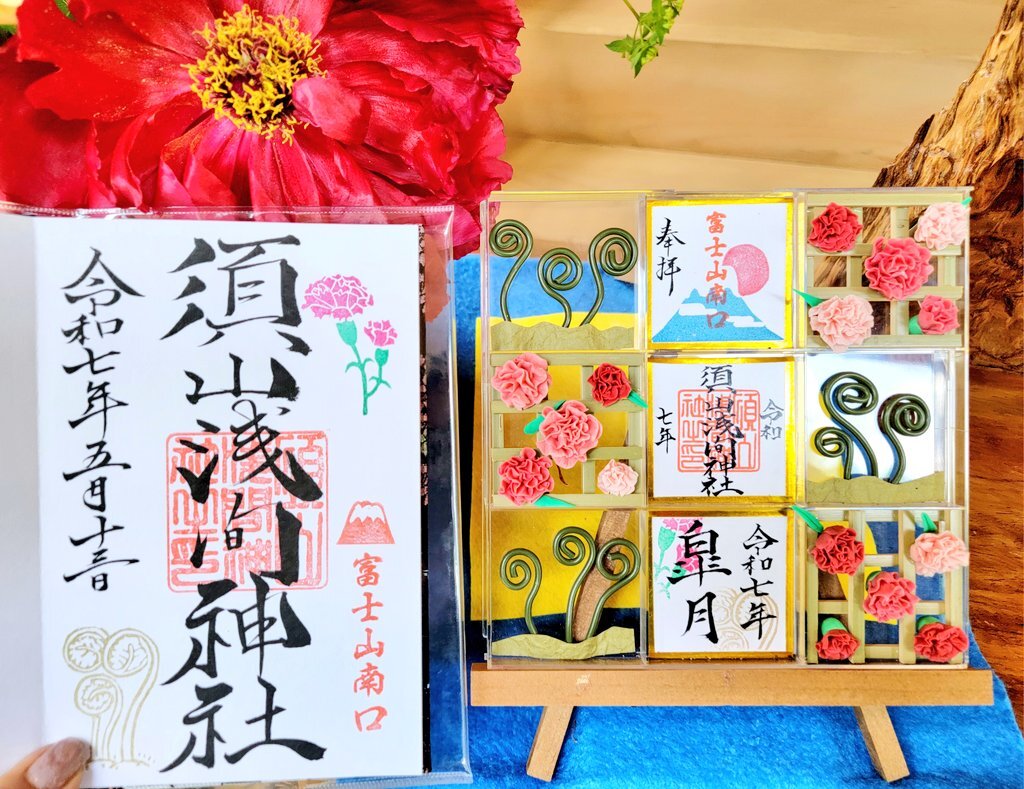 富士山南口
須山浅間神社
令和七年五月十三日
富士山南口
奉拝
令和
須山浅間神社
七年
令和七年
皐月